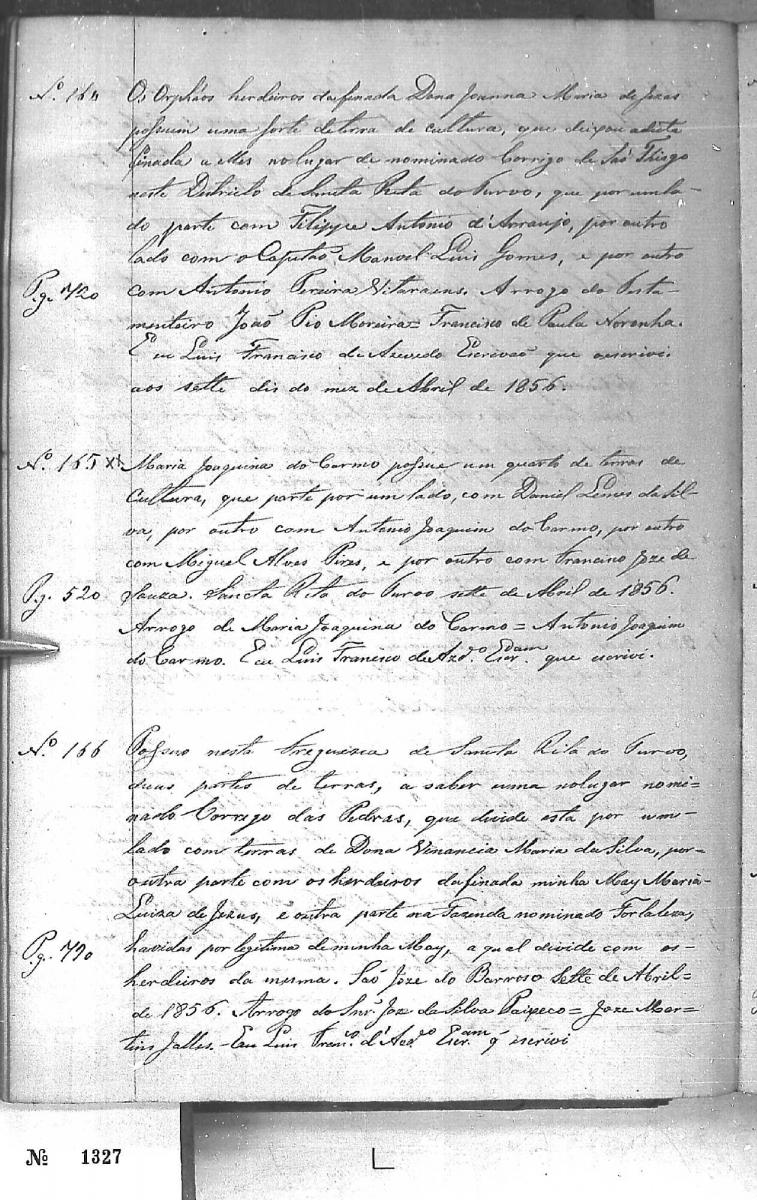 N.º 164 Os Orphãos herdeiros da finada Dona Joanna Maria de Jezus
possuem uma sorte de terra de cultura, que deixou a dita
finada a elles no lugar de nominado Corrigo de São Thiago
neste Districto de Sancta Rita do Turvo, que por um la-
do parte com Filippe Antonio d'Araujo, por outro
lado com o Capitão Manoel Luis Gomes, e por outro
Pg. 720 com Antonio Pereira Arrogo do Testa-
menteiro João Pio Moreira = Francisco de Paula Noronha.
E eu Luis Francisco de Azevedo Escrivaõ que o escrivi.
aos sette dis do mez de Abril de 1856.
N.º 165 Maria Joaquina do Carmo possue um quarto de terras de
Cultura, que parte por um lado, com Daniel Lemes da Sil-
va, por outro com Antonio Joaquim do Carmo, por outro
com Miguel Alves Pires, e por outro com Francisco Joze de
Pg. 520 Souza. Sancta Rita do Turvo sette de Abril de 1856.
Arrogo de Maria Joaquina do Carmo = Antonio Joaquim
do Carmo. E eu Luis Francisco de Azd.º Escr.am que escrivi.
N.º 166 Possuo nesta Freguezia de Sancta Rita do Turvo,
duas partes de terras, a saber uma no lugar nomi=
nado Corrego das Pedras, que divide esta por um-
lado com terras de Dona Vinancia Maria da Silva, por=
outra parte com os herdeiros da finada minha May Maria-
Luiza de Jezus, e outra parte na Fazenda nominado Fortaleza,
Pg. 790 havidas por legitima de minha May, a qual divide com os-
herdeiros da mesma. São Joze do Barroso Sette de Abril-
de 1856. Arrogo do Snr. Joz da Silva Paixeco = Joze Mar=
tins Jalles. - E eu Luis Fran.co d'Azd.º Escr.am q' escrivi
Nº 1327